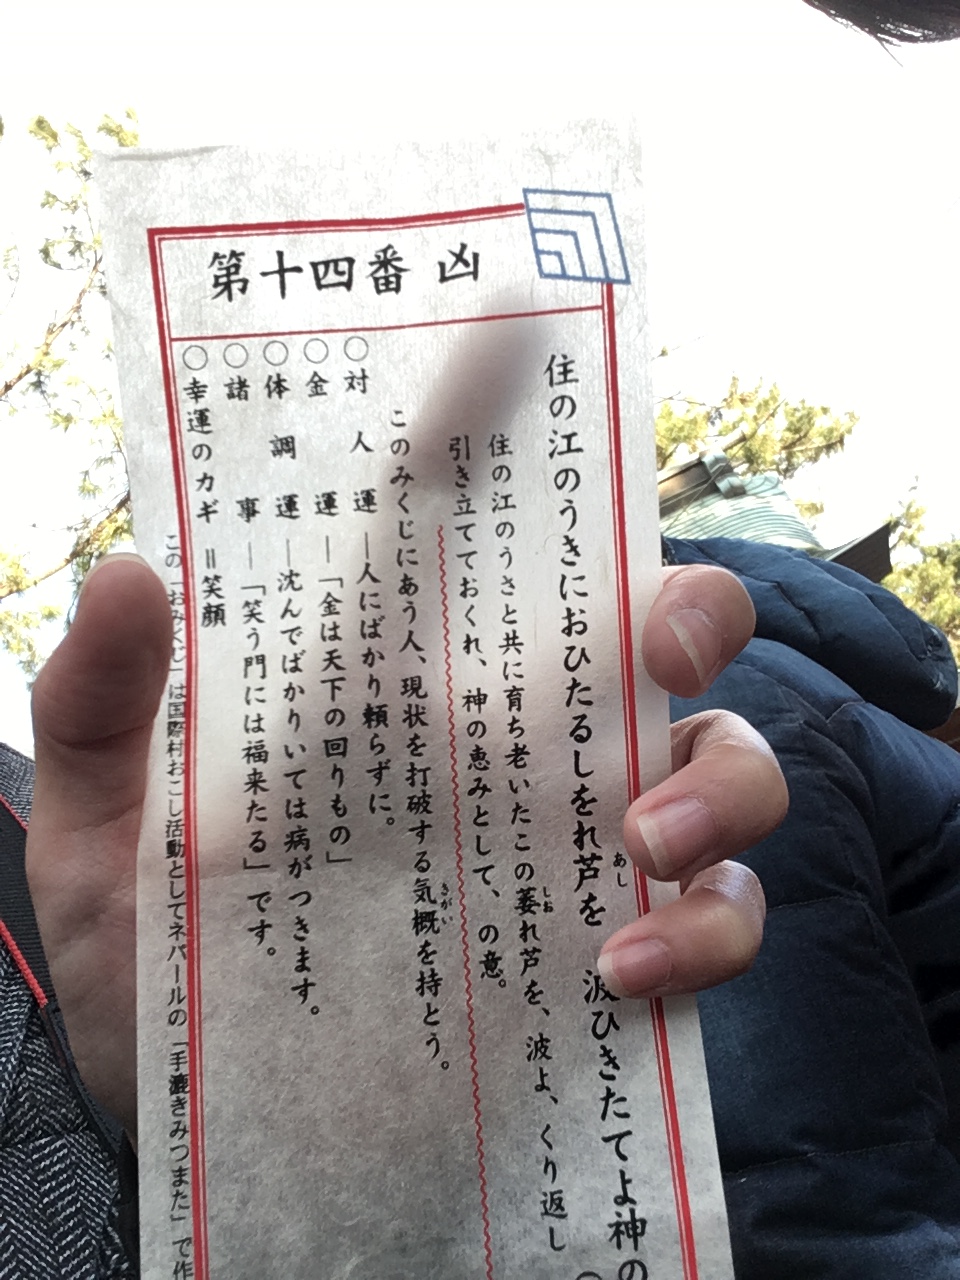 第十四番 凶
住の江のうきにおひたるしをれ芦を 波ひきたてよ神の
あし
住の江のうさと共に育ち老いたこの萎れ芦を、波よ、くり返し
しお
引き立てておくれ、神の恵みとして、の意。
このみくじにあう人、現状を打破する気概を持とう。
きがい
○対人運―人にばかり頼らずに。
○金運―「金は天下の回りもの」
○体調運―沈んでばかりいては病がつきます。
○諸事―「笑う門には福来たる」です。
○幸運のカギ＝笑顔
この「おみくじ」は国際村おこし活動としてネパールの「手漉きみつまた」で作